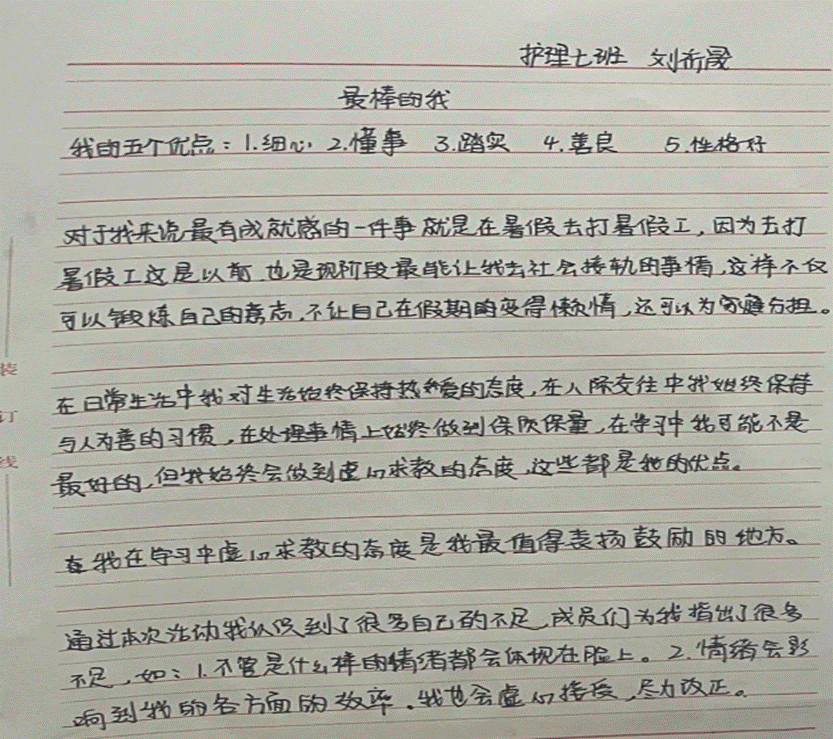 护理七班 刘祈晟
最棒的我
我的五个优点：1.细心 2.懂事 3.踏实 4.善良 5.性格好
对于我来说最有成就感的一件事就是在暑假去打暑假工，因为去打
暑假工这是以前也是现阶段最能让我去社会接轨的事情，这样不仅
可以锻炼自己的意志，不让自己在假期的变得懒惰，还可以为家庭分担。
在日常生活中我对生活始终保持热爱的态度，在人际交往中我始终保持
与人为善的习惯，在处理事情上始终做到保质保量，在学习中我可能不是
最好的，但我始终会做到虚心求教的态度，这些都是我的优点。
在我在学习中虚心求教的态度是我最值得表扬鼓励的地方。
通过本次活动我认识到了很多自己的不足，成员们为我指出了很多
不足，如：1.不管是什么样的情绪都会体现在脸上。2.情绪会影
响到我的各方面的效率，我也会虚心接受，尽力改正。
装
订
线